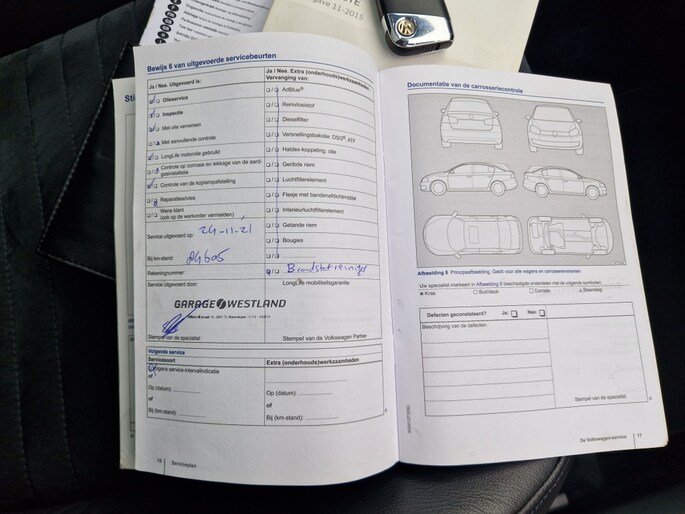 gave 11-2015
Bewijs 6 van uitgevoerde servicebeurten
Ja / Nee. Uitgevoerd is:
Olieservice
Inspectie
Met olie verversen
Met aanvullende controle
LongLife motorolie gebruikt
Controle op corrosie en lekkage van de aard-
gasinstallatie
Controle van de koplampafstelling
Reparatieadvies
Wens klant
(ook op de werkorder vermelden)
Service uitgevoerd op: 24-11-'21
Bij km-stand: 84605
Rekeningnummer:
Service uitgevoerd door:
GARAGE WESTLAND
Stempel van de specialist
Ja / Nee. Extra (onderhouds)werkzaamheden
Vervanging van:
AdBlue®
Remvloeistof
Dieselfilter
Versnellingsbakolie: DSG®, ATF
Haldex-koppeling: olie
Geribde riem
Luchtfilterelement
Flesje met bandenafdichtmiddel
Interieurluchtfilterelement
Getande riem
Bougies
Brandstofreiniger
LongLife mobiliteitsgarantie:
Stempel van de Volkswagen Partner
Volgende service
Servicesoort
Volgens service-intervalindicatie
of
Op (datum):
of
Bij (km-stand):
Extra (onderhouds)werkzaamheden
Op (datum):
of
Bij (km-stand):
16 Serviceplan
Documentatie van de carrosseriecontrole
Afbeelding 5 Principeafbeelding. Geldt voor alle wagens en carrosserievarianten
Uw specialist markeert in Afbeelding 5 beschadigde onderdelen met de volgende symbolen:
x Kras
○ Buil/deuk
□ Corrosie
△ Steenslag
Defecten geconstateerd? Ja: Nee:
Beschrijving van de defecten:
Stempel van de specialist
De Volkswagen-service 17